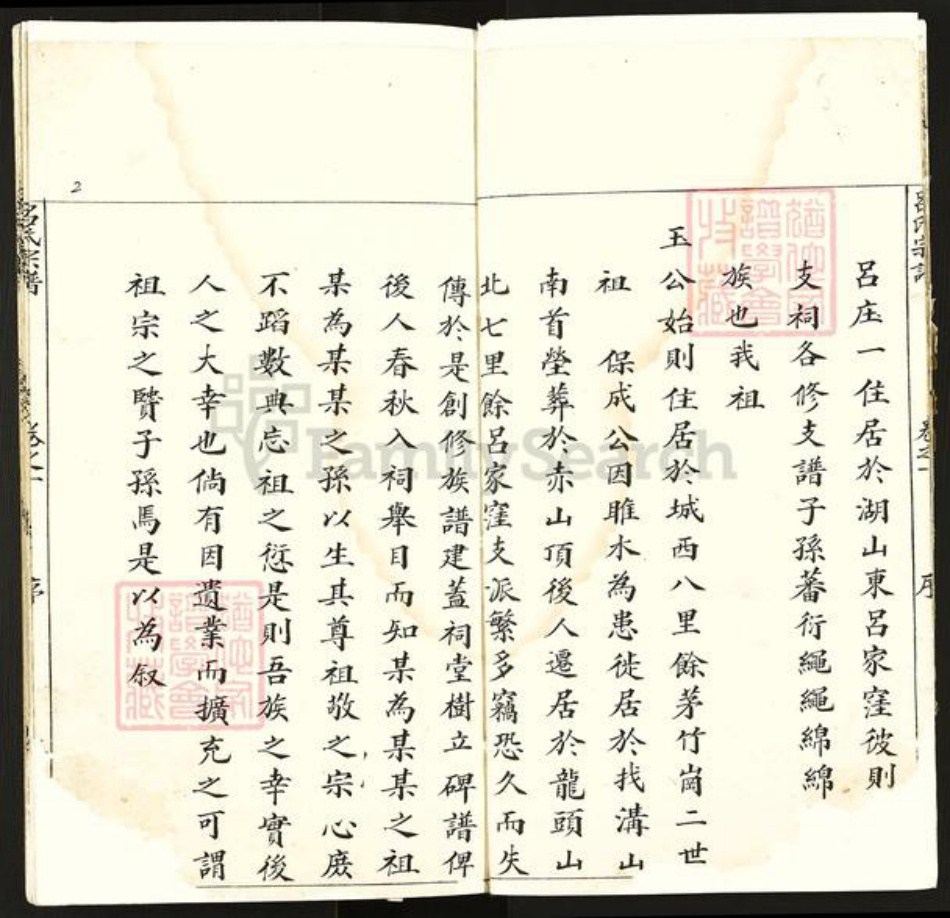 呂庄一住居於湖山東呂家窪彼則
支祠各修支譜子孫蕃衍繩繩綿綿
族也我祖
玉公始則住居於城西八里餘茅竹崗二世
祖 保成公因睢水為患徙居於找溝山
南首塋葬於赤山頂後人遷居於龍頭山
北七里餘呂家窪支派繁多竊恐久而失
傳於是創修族譜建蓋祠堂樹立碑譜俾
後人春秋入祠舉目而知某為某某之祖
某為某某之孫以生其尊祖敬之宗心庶
不蹈數典忘祖之愆是則吾族之幸實後
人之大幸也倘有因遺業而擴充之可謂
祖宗之賢子孫焉是以為叙
呂氏宗譜
卷之一
序
2
FamilySearch